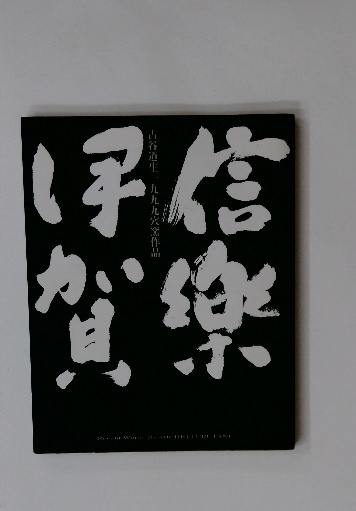 信樂
古谷道生一九九九穴窯作品
伊賀